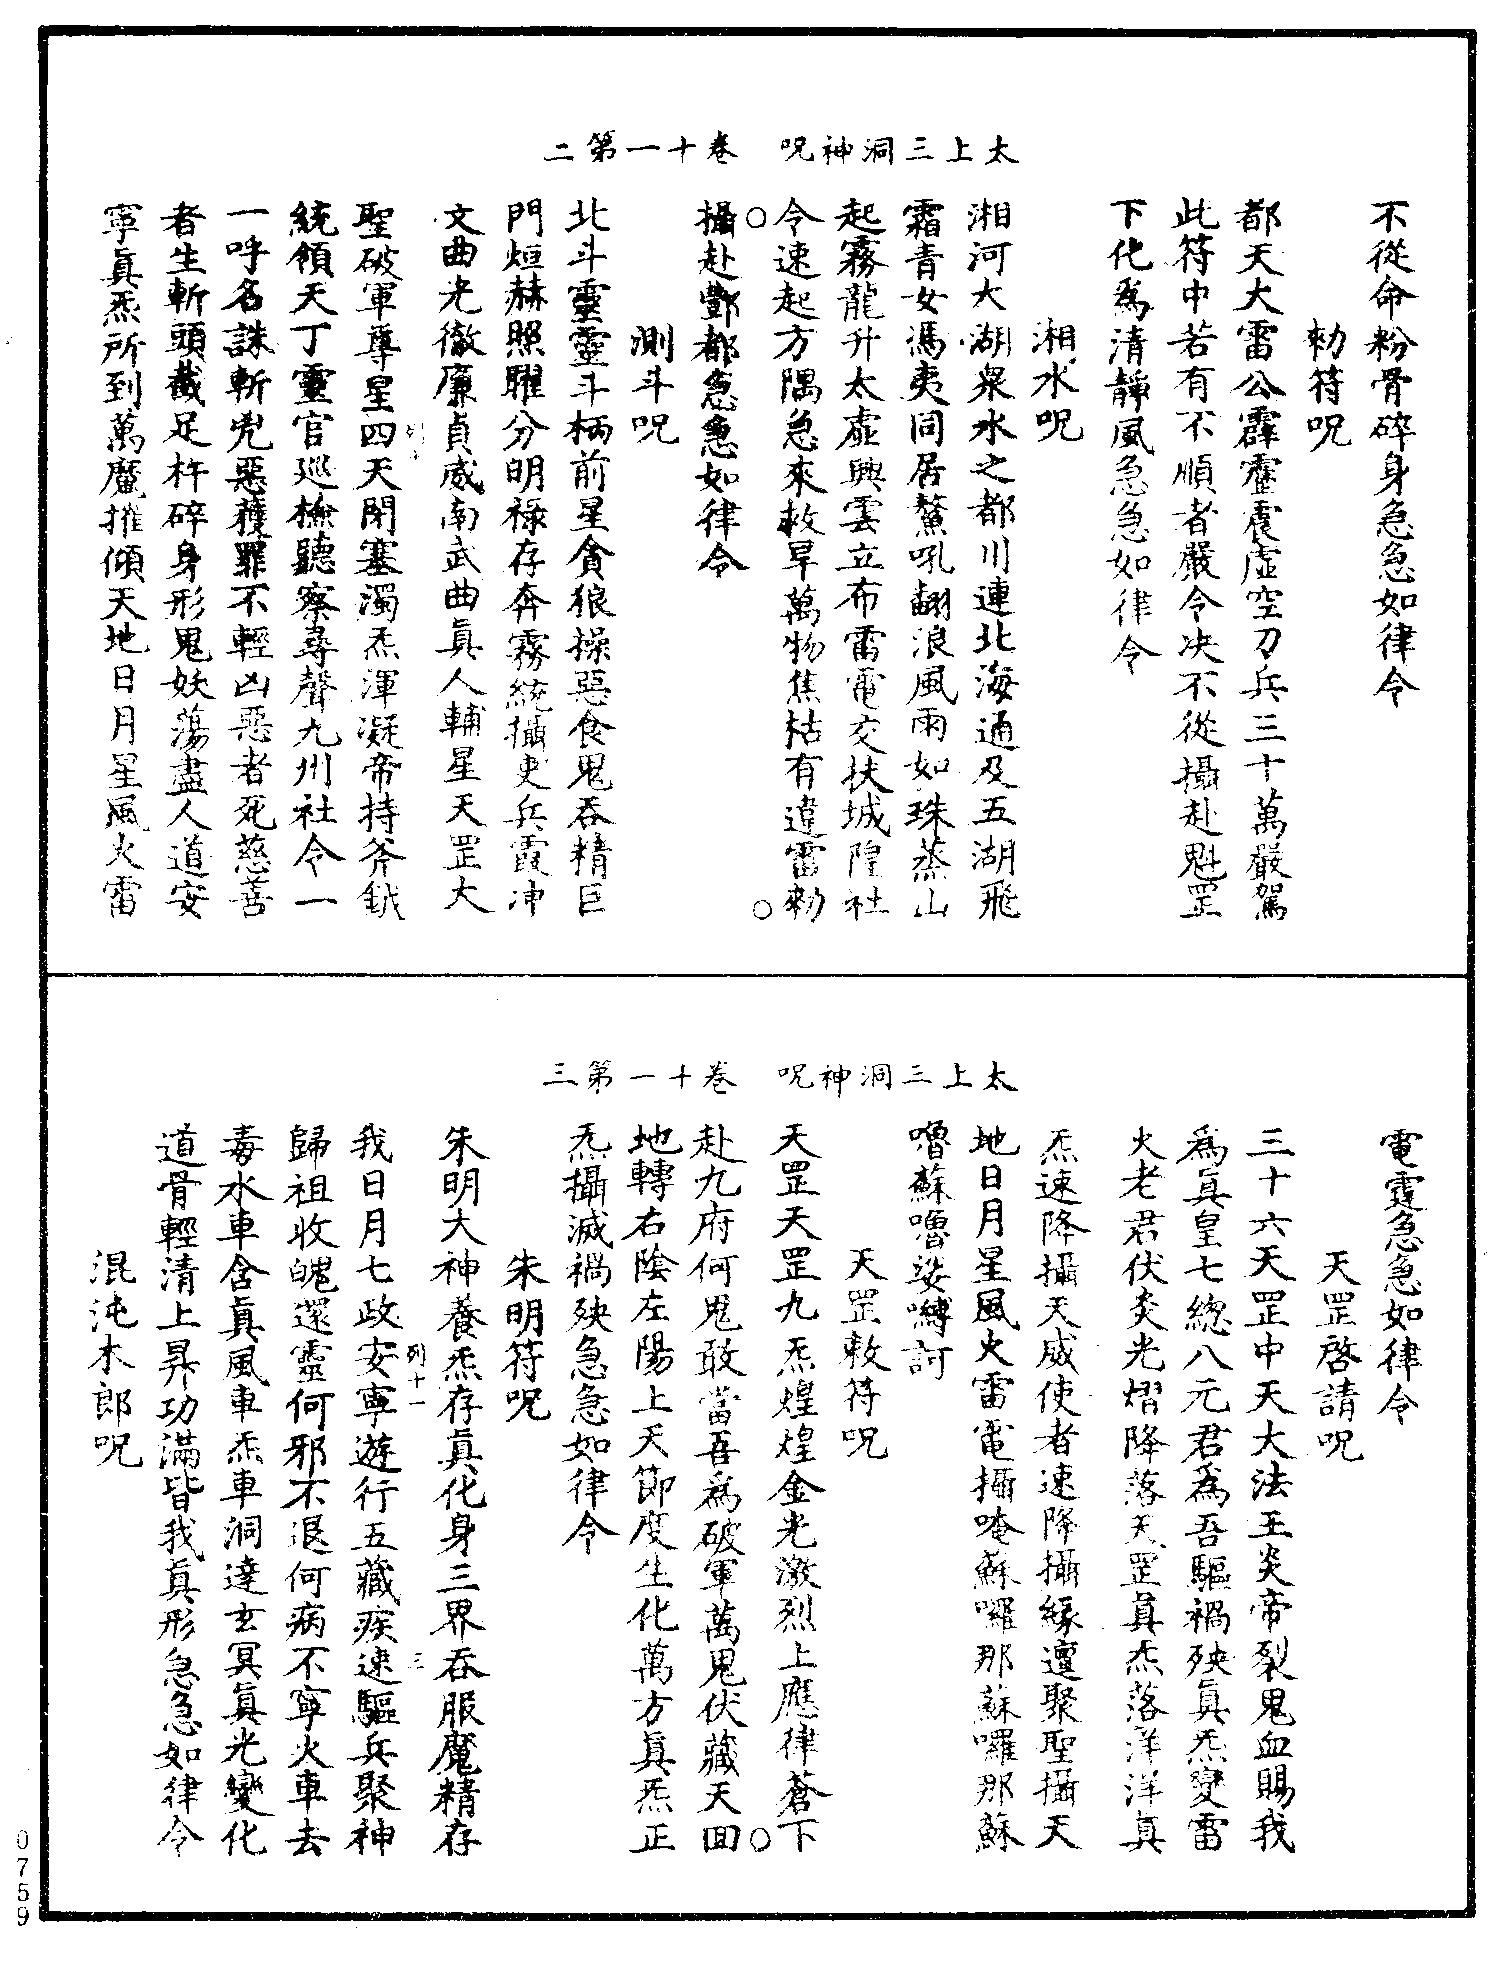 太上三洞神呪　卷十一第二
不從命粉骨碎身急急如律令
勑符呪
都天大雷公霹靂震虛空刀兵三十萬嚴駕
此符中若有不順者嚴令决不從攝赴魁罡
下化爲清靜風急急如律令
湘水呪
湘河大湖衆水之都川連北海通及五湖飛
霜青女馮夷同居鰲吼翻浪風雨如珠蒸山
起霧龍升太虛興雲立布雷電交扶城隍社
令速起方隅急來救旱萬物焦枯有違雷勑
攝赴酆都急急如律令
測斗呪
北斗靈靈斗柄前星貪狼操惡食鬼吞精巨
門烜赫照曜分明禄存奔霧統攝吏兵霞冲
文曲光徹廉貞威南武曲眞人輔星天罡大
聖破軍尊星四天閉塞濁炁渾凝帝持斧鉞
統領天丁靈官巡撿聽察尋聲九州社令一
一呼名誅斬兇惡穫罪不輕凶惡者死慈善
者生斬頭截足杵碎身形鬼妖蕩盡人道安
寧眞炁所到萬魔摧傾天地日月星風火雷
太上三洞神呪　卷十一第三
電霆急急如律令
天罡啓請呪
三十六天罡中天大法王炎帝裂鬼血賜我
爲眞皇七總八元君爲吾驅禍殃眞炁變雷
火老君伏炎光熠降落天罡眞炁落洋洋眞
炁速降攝天威使者速降攝緣邅聚聖攝天
地日月星風火雷電攝唵蘇囉那蘇囉那蘇
嚕蘇嚕娑嚩訶
天罡敕符呪
天罡天罡九炁煌煌金光激烈上應律蒼下
赴九府何鬼敢當吾爲破軍萬鬼伏藏天囬
地轉右陰左陽上天節度生化萬方眞炁正
炁攝滅禍殃急急如律令
朱明符呪
朱明大神養炁存眞化身三界吞服魔精存
我日月七政安寧遊行五藏疾速驅兵聚神
列十一
三
歸祖收魄還靈何邪不退何病不寧火車去
毒水車含眞風車炁車洞達玄冥眞光變化
道骨輕清上昇功滿皆我眞形急急如律令
混沌木郎呪
0759